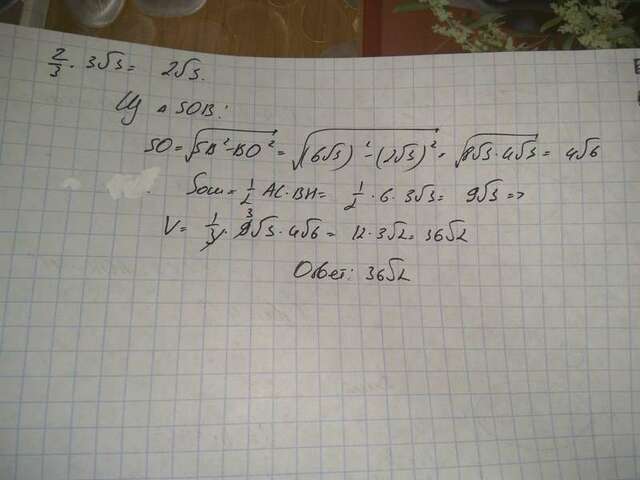 2/3 · 3√3 = 2√3.
Из △ SOB:
SO = √(SB² - BO²) = √((6√3)² - (2√3)²) = √(8√3 · 4√3) = 4√6
Sосн = 1/2 AC · BH = 1/2 · 6 · 3√3 = 9√3 =>
V = 1/3 · 9√3 · 4√6 = 12 · 3√2 = 36√2
Ответ: 36√2